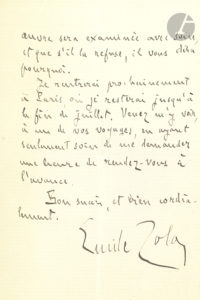 œuvre sera examinée avec soin,
et que s'il la refuse, il vous dira
pourquoi.
Je rentrerai prochainement
à Paris où je resterai jusqu'à
la fin de juillet. Venez m'y voir,
à un de vos voyages, en ayant
seulement soin de me demander
une heure de rendez-vous à
l'avance.
Bon succès, et bien cordia-
lement.
Emile Zola